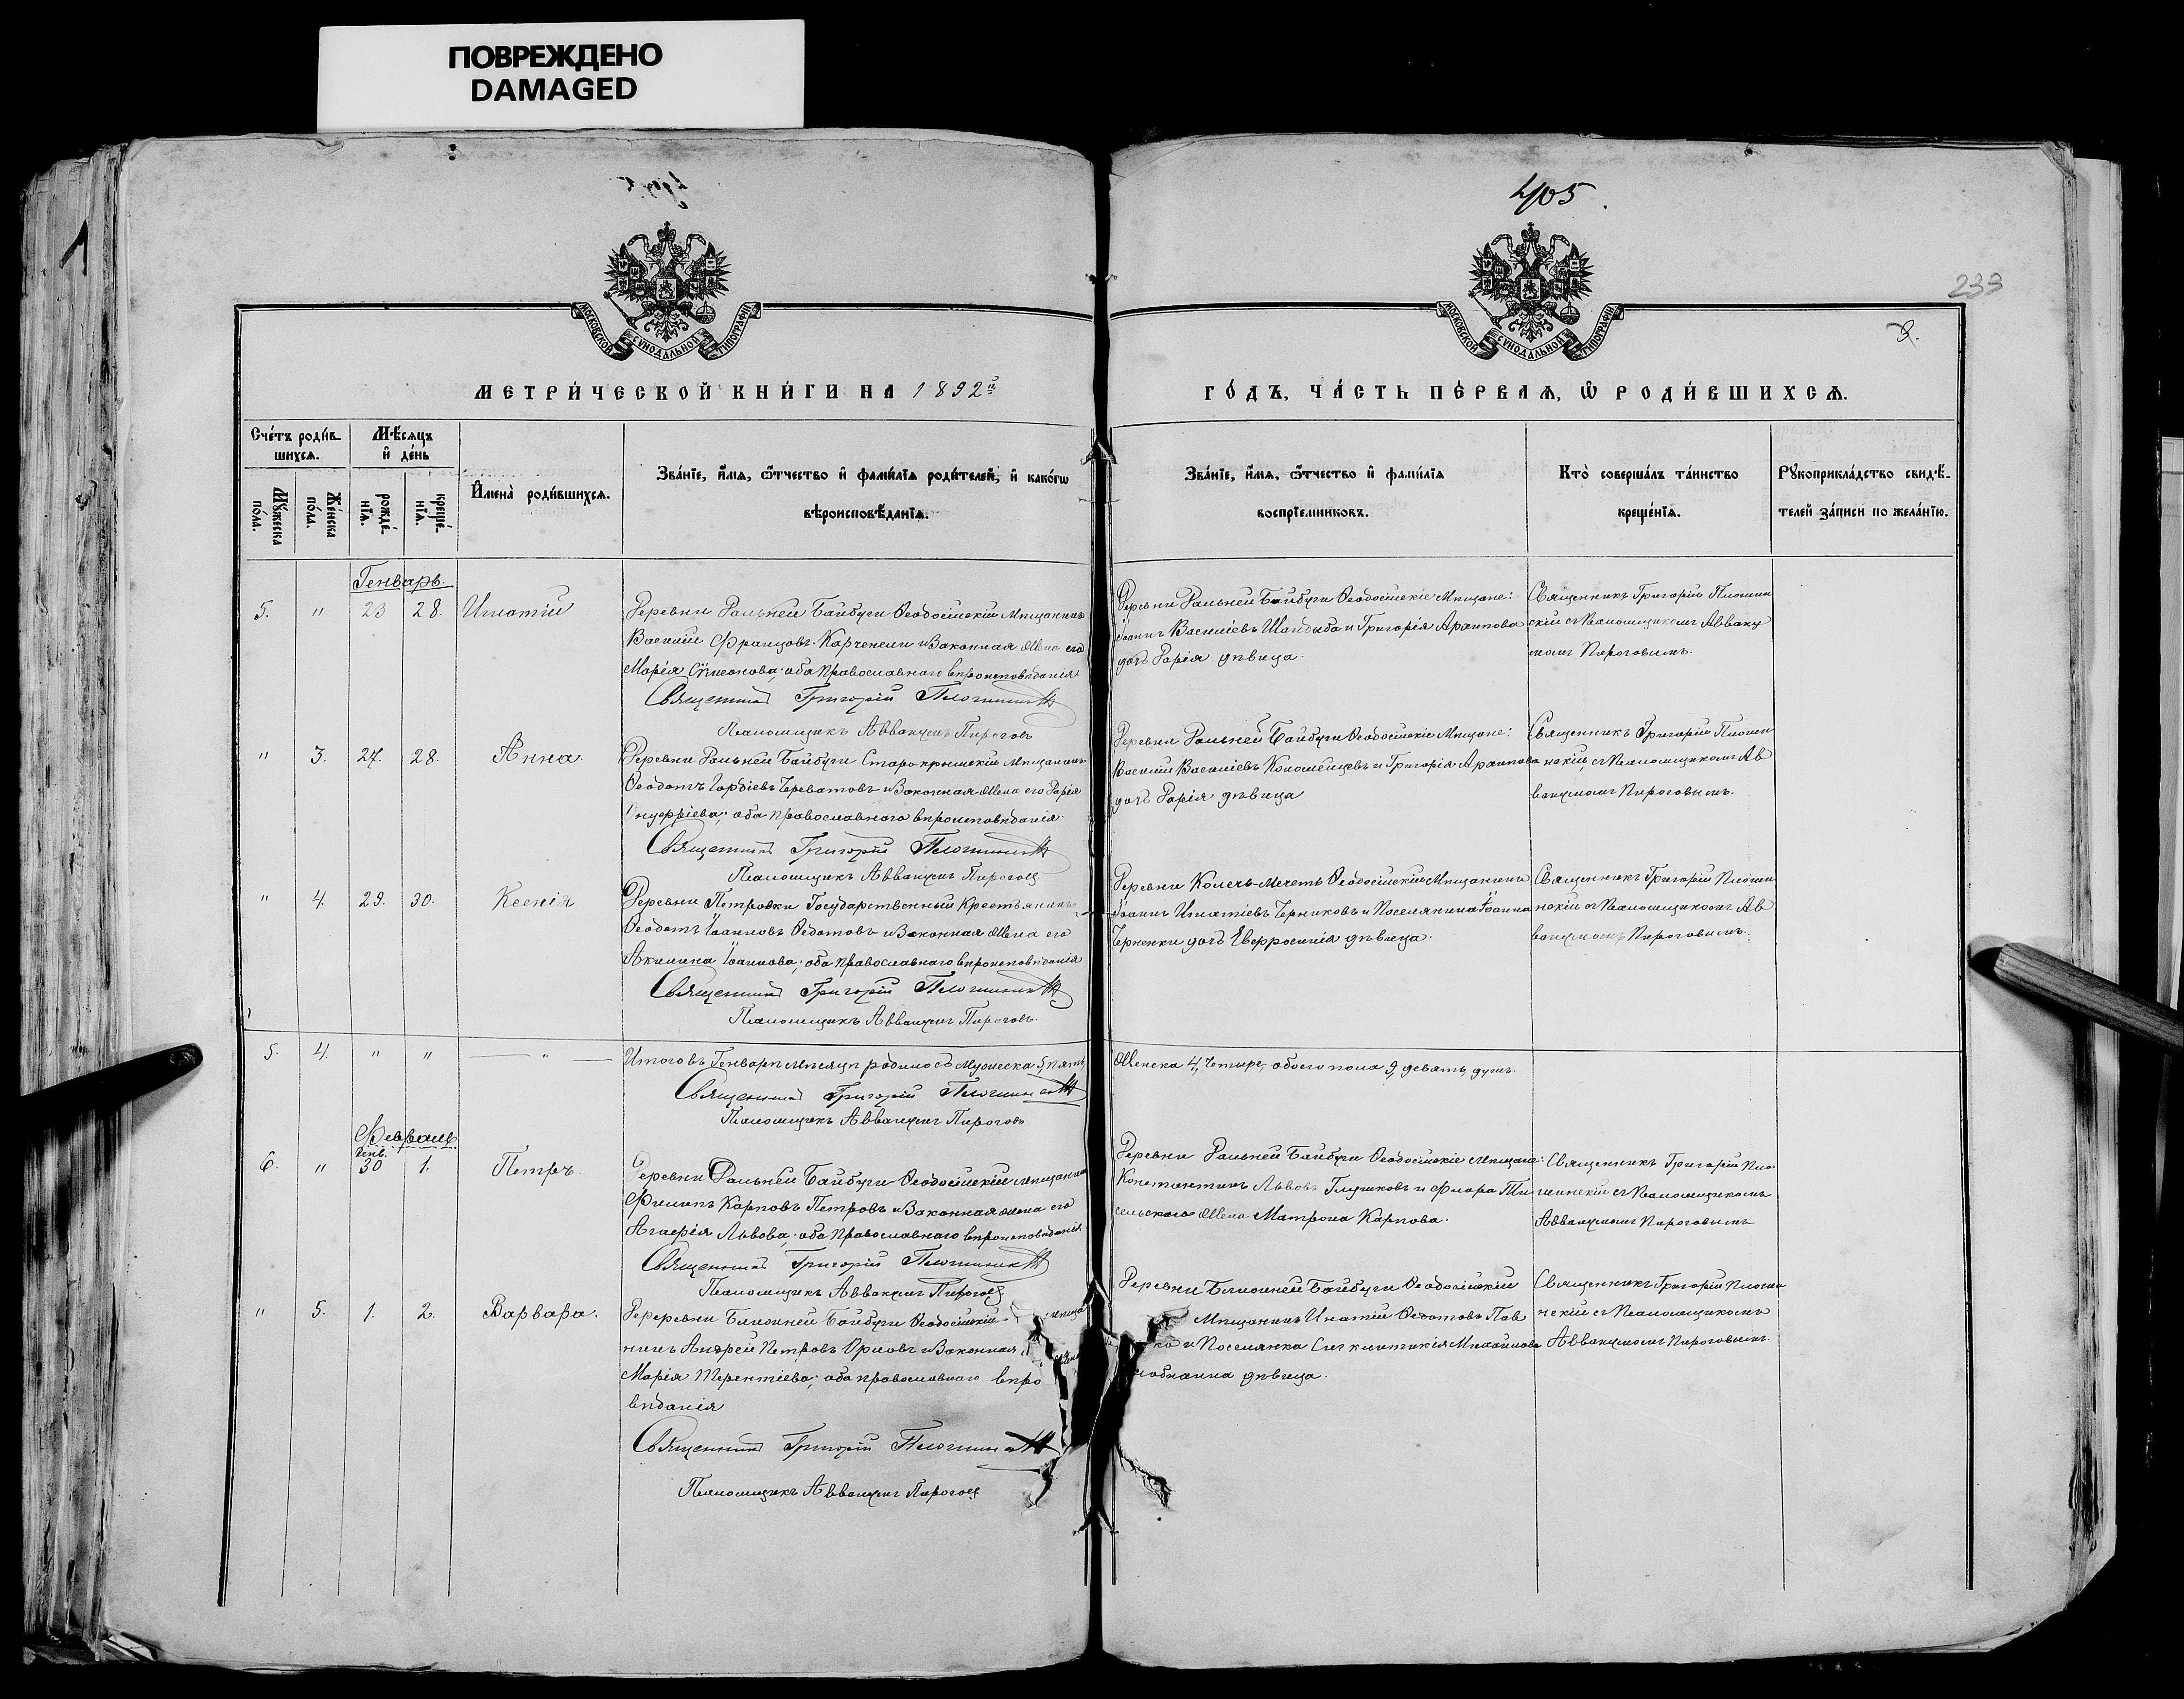 ПОВРЕЖДЕНО
DAMAGED
1
405.
233
3.
МОСКОВСКОЙ СѴНОДАЛЬНОЙ ТИПОГРАФІИ
МОСКОВСКОЙ СѴНОДАЛЬНОЙ ТИПОГРАФІИ
МЕТРИ́ЧЕСКОЙ КНИ́ГИ НА 1892й
ГО́ДЪ, ЧА́СТЬ ПЕ́РВАѦ, Ѡ҆ РОДИ́ВШИХСѦ.
Сче́тъ роди́в-
шихсѧ.
Мѣ́сѧцъ
и҆ де́нь
Мꙋ́жеска
по́ла.
Же́нска
по́ла.
рожде́-
нїѧ.
креще́-
нїѧ.
И҆мена̀ роди́вшихсѧ.
Зва́нїе, и҆́мѧ, ѻ҆́тчество и҆ фами́лїѧ роди́телей, и҆ како́гѡ
вѣроисповѣ́данїѧ.
Зва́нїе, и҆́мѧ, ѻ҆́тчество и҆ фами́лїѧ
воспрїе́мниковъ.
Кто̀ соверша́лъ та́инство
креще́нїѧ.
Рꙋкоприкла́дство свидѣ́-
телей за́писи по жела́нїю.
Генварь.
5. " 23 28. Игнатій
Деревни Дальней Байбуги Ѳеодосійскій Мѣщанинъ
Василій Францовъ Карченспи и Законная Жена его
Марія Сѵмеонова; оба Православнаго вѣроисповѣданія
Священникъ Григорій
Псаломщикъ Аввакумъ Пироговъ
Деревни Дальней Байбуги Ѳеодосійскіе Мѣщане:
Іоаннъ Василіевъ Шандыба и Григорія Архипова
дочь Дарія дѣвица.
Священникъ Григорій
скій съ Псаломщикомъ Авваку
момъ Пироговымъ.
" 3. 27. 28. Анна.
Деревни Дальней Байбуги Старокрымскій Мѣщанинъ
Ѳеодотъ Гордіевъ Череватовъ и Законная Жена его Дарія
Онуфріева; оба православнаго вѣроисповѣданія.
Священникъ Григорій
Псаломщикъ Аввакумъ Пироговъ
Деревни Дальней Байбуги Ѳеодосійскіе Мѣщане:
Василій Василіевъ Коломейцевъ и Григорія Архипова
дочь Дарія дѣвица
Священникъ Григорій
нскій, съ Псаломщикомъ Ав
вакумомъ Пироговымъ.
" 4. 29. 30. Ксенія
Деревни Петровки Государственный Крестьянинъ
Ѳеодотъ Іоанновъ Ѳедотовъ и Законная Жена его
Акилина Іоаннова; оба православнаго вѣроисповѣданія
Священникъ Григорій
Псаломщикъ Аввакумъ Пироговъ.
Деревни Колечь-Мечеть Ѳеодосійскій Мѣщанинъ
Іоаннъ Игнатіевъ Черниковъ и Поселянина Іоанна
Черненки дочь Евфросинія дѣвица.
Священникъ Григорій
нскій съ Псаломщикомъ Ав
вакумомъ Пироговымъ.
5. 4. " " — " —
Итого въ Генварѣ мѣсяцѣ родилось Мужеска 5, пять,
Женска 4, Четыре, обоего пола 9, девять, душъ.
Священникъ Григорій
Псаломщикъ Аввакумъ Пироговъ
Февраль.
Генв.
6. " 30 1. Петръ.
Деревни Дальней Байбуги Ѳеодосійскій мѣщанинъ
Филипъ Карповъ Петровъ и Законная жена его
Агафія Львова; оба Православнаго вѣроисповѣданія
Священникъ Григорій
Псаломщикъ Аввакумъ Пироговъ
Деревни Дальней Байбуги Ѳеодосійскіе Мѣщане:
Константинъ Львовъ Глушковъ и Флора Ти
сельскаго Жена Матрона Карпова.
Священникъ Григорій
нскій съ Псаломщикомъ
Аввакумомъ Пироговымъ
" 5. 1. 2. Варвара.
Дереревни Ближней Байбуги Ѳеодосійскій мѣща
нинъ Андрей Петровъ Орловъ и Законная
Марія Терентіева; оба православнаго вѣро
вѣданія
Священникъ Григорій
Псаломщикъ Аввакумъ Пироговъ
Деревни Ближней Байбуги Ѳеодосійскій
Мѣщанинъ Игнатій Ѳедотовъ Пав
ко и Поселянка Синклитикія Михайлова
дѣвица.
Священникъ Григорій
нскій съ Псаломщикомъ
Аввакумомъ Пироговымъ.